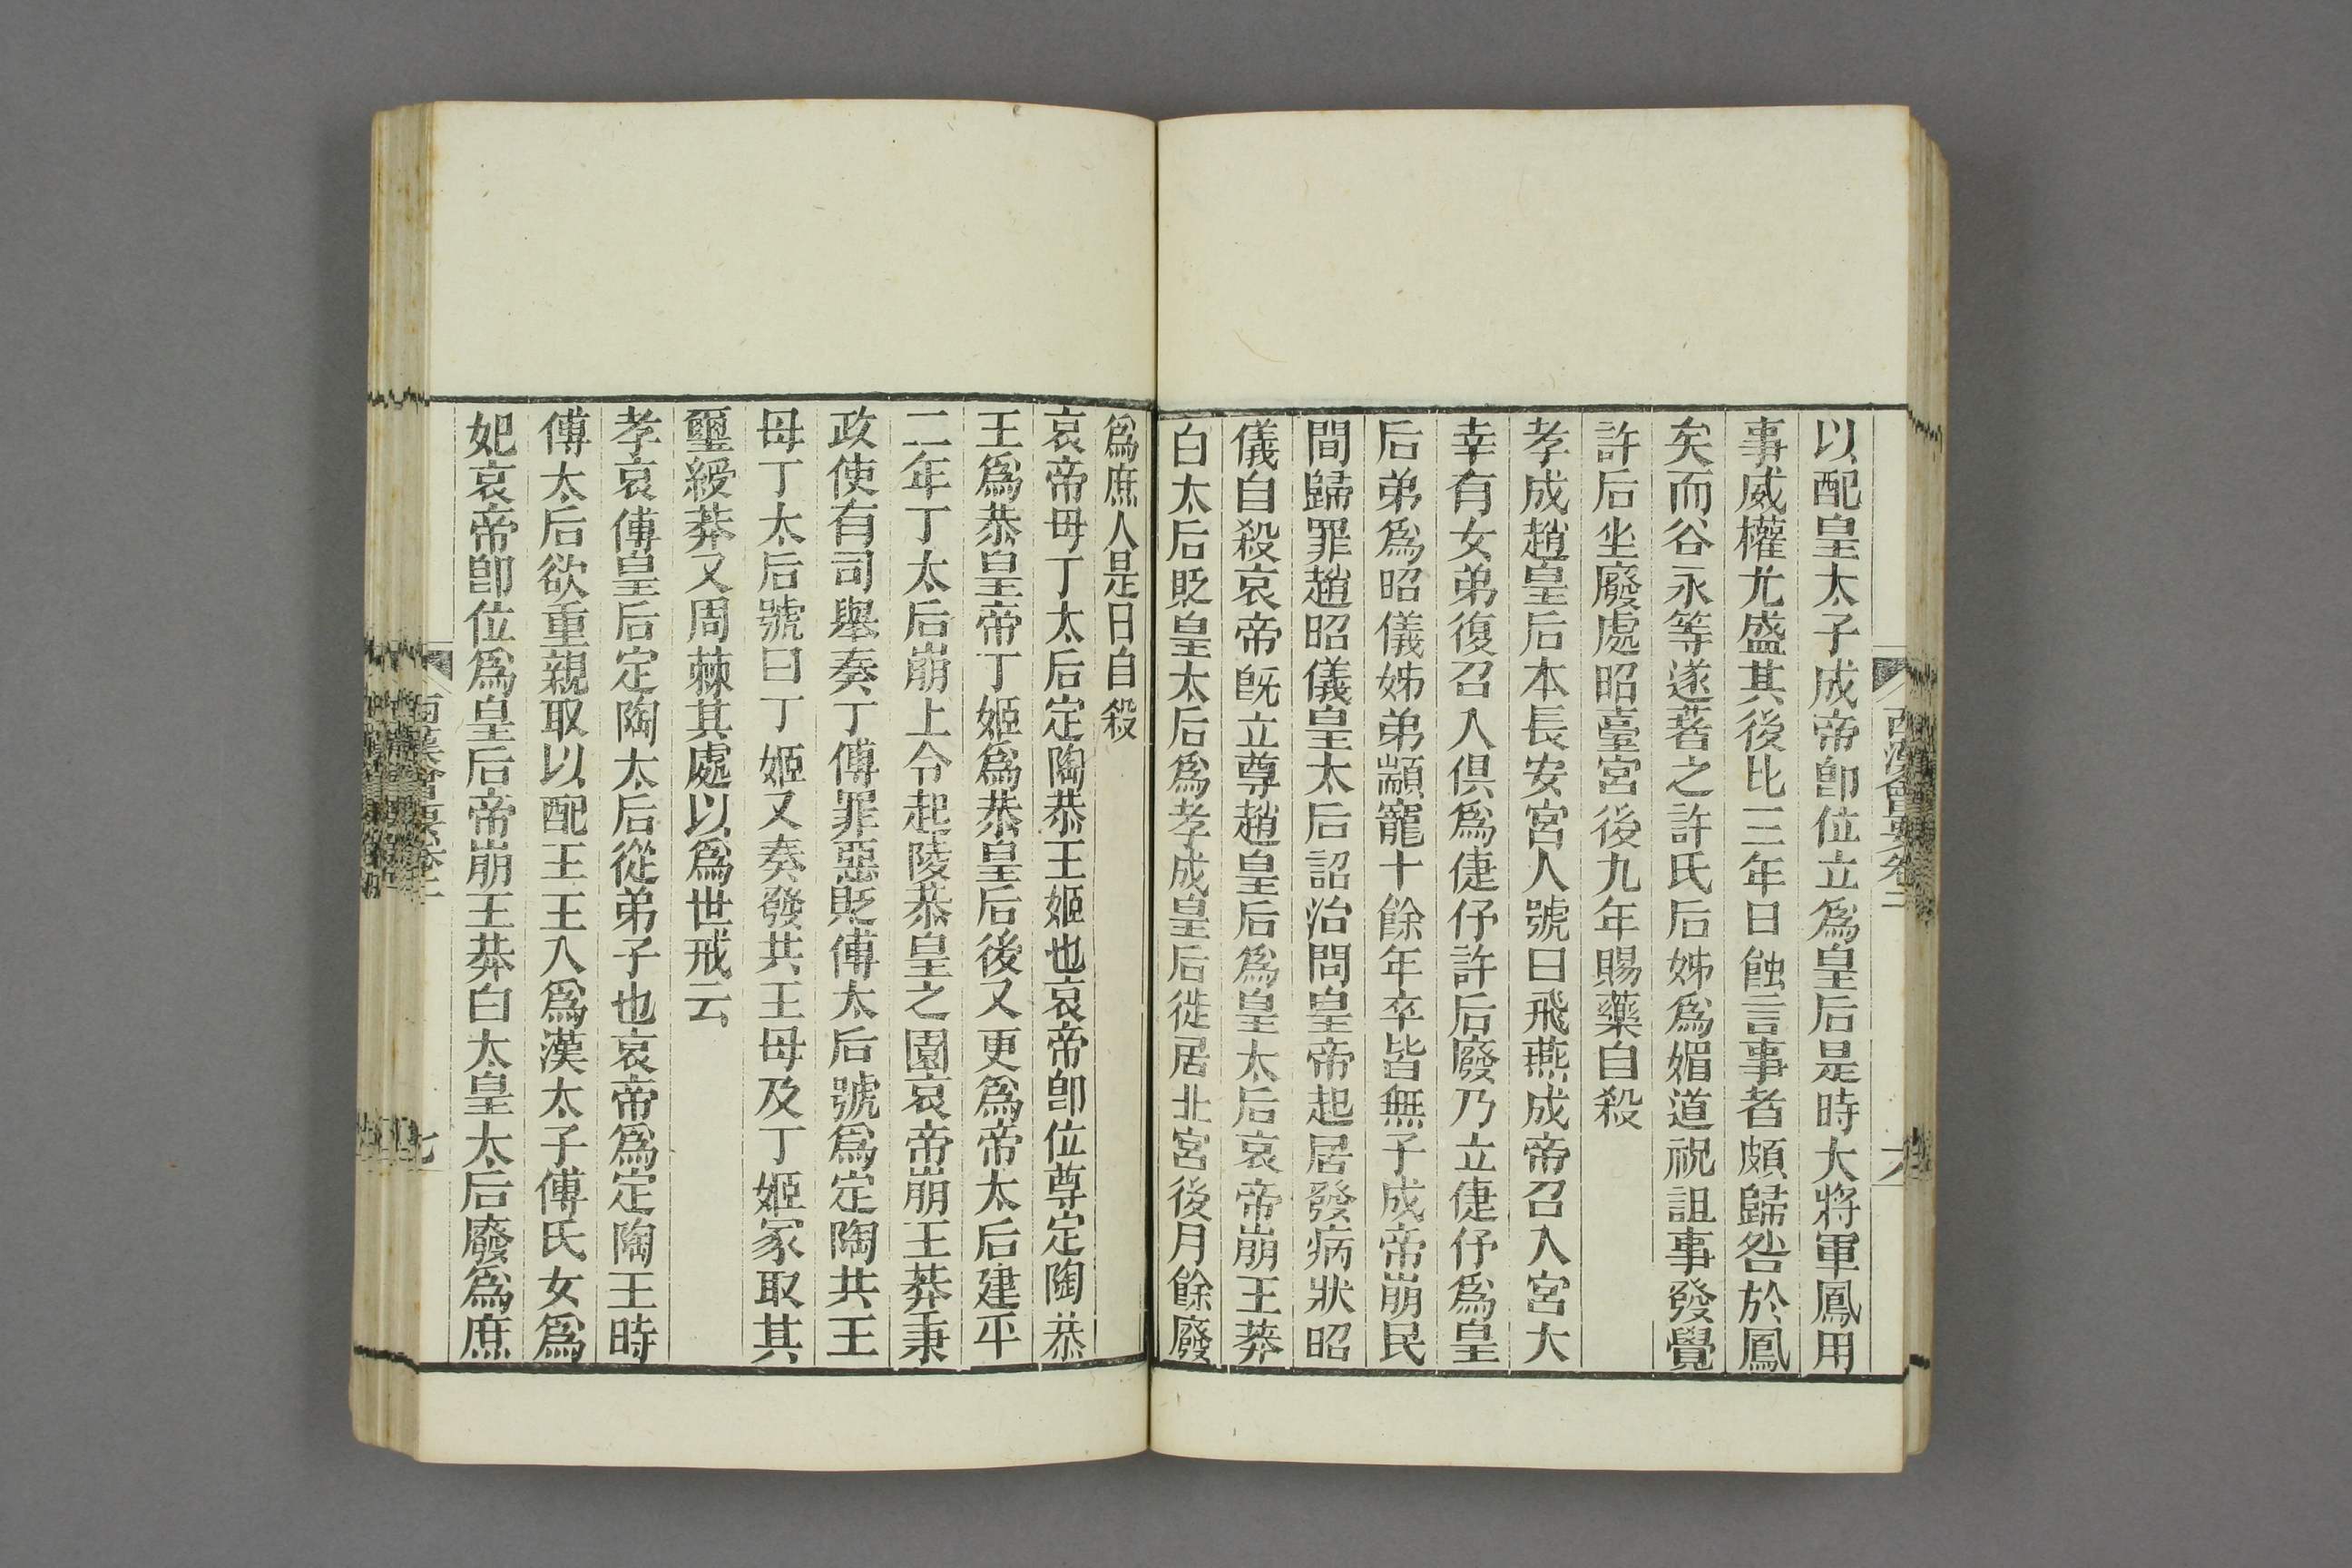 西漢會要卷二
六
以配皇太子成帝卽位立爲皇后是時大將軍鳳用
事威權尤盛其後比三年日蝕言事者頗歸咎於鳳
矣而谷永等遂著之許氏后姊爲媚道祝詛事發覺
許后坐廢處昭臺宮後九年賜藥自殺
孝成趙皇后本長安宮人號曰飛燕成帝召入宮大
幸有女弟復召入俱爲倢伃許后廢乃立倢伃爲皇
后弟爲昭儀姊弟顓寵十餘年卒皆無子成帝崩民
間歸罪趙昭儀皇太后詔治問皇帝起居發病狀昭
儀自殺哀帝旣立尊趙皇后爲皇太后哀帝崩王莽
白太后貶皇太后爲孝成皇后徙居北宮後月餘廢
爲庶人是日自殺
哀帝母丁太后定陶恭王姬也哀帝卽位尊定陶恭
王爲恭皇帝丁姬爲恭皇后後又更爲帝太后建平
二年丁太后崩上令起陵恭皇之園哀帝崩王莽秉
政使有司舉奏丁傅罪惡貶傅太后號爲定陶共王
母丁太后號曰丁姬又奏發共王母及丁姬冢取其
璽綬莽又周棘其處以爲世戒云
孝哀傅皇后定陶太后從弟子也哀帝爲定陶王時
傅太后欲重親取以配王王入爲漢太子傅氏女爲
妃哀帝卽位爲皇后帝崩王莽白太皇太后廢爲庶
西漢會要卷二
七